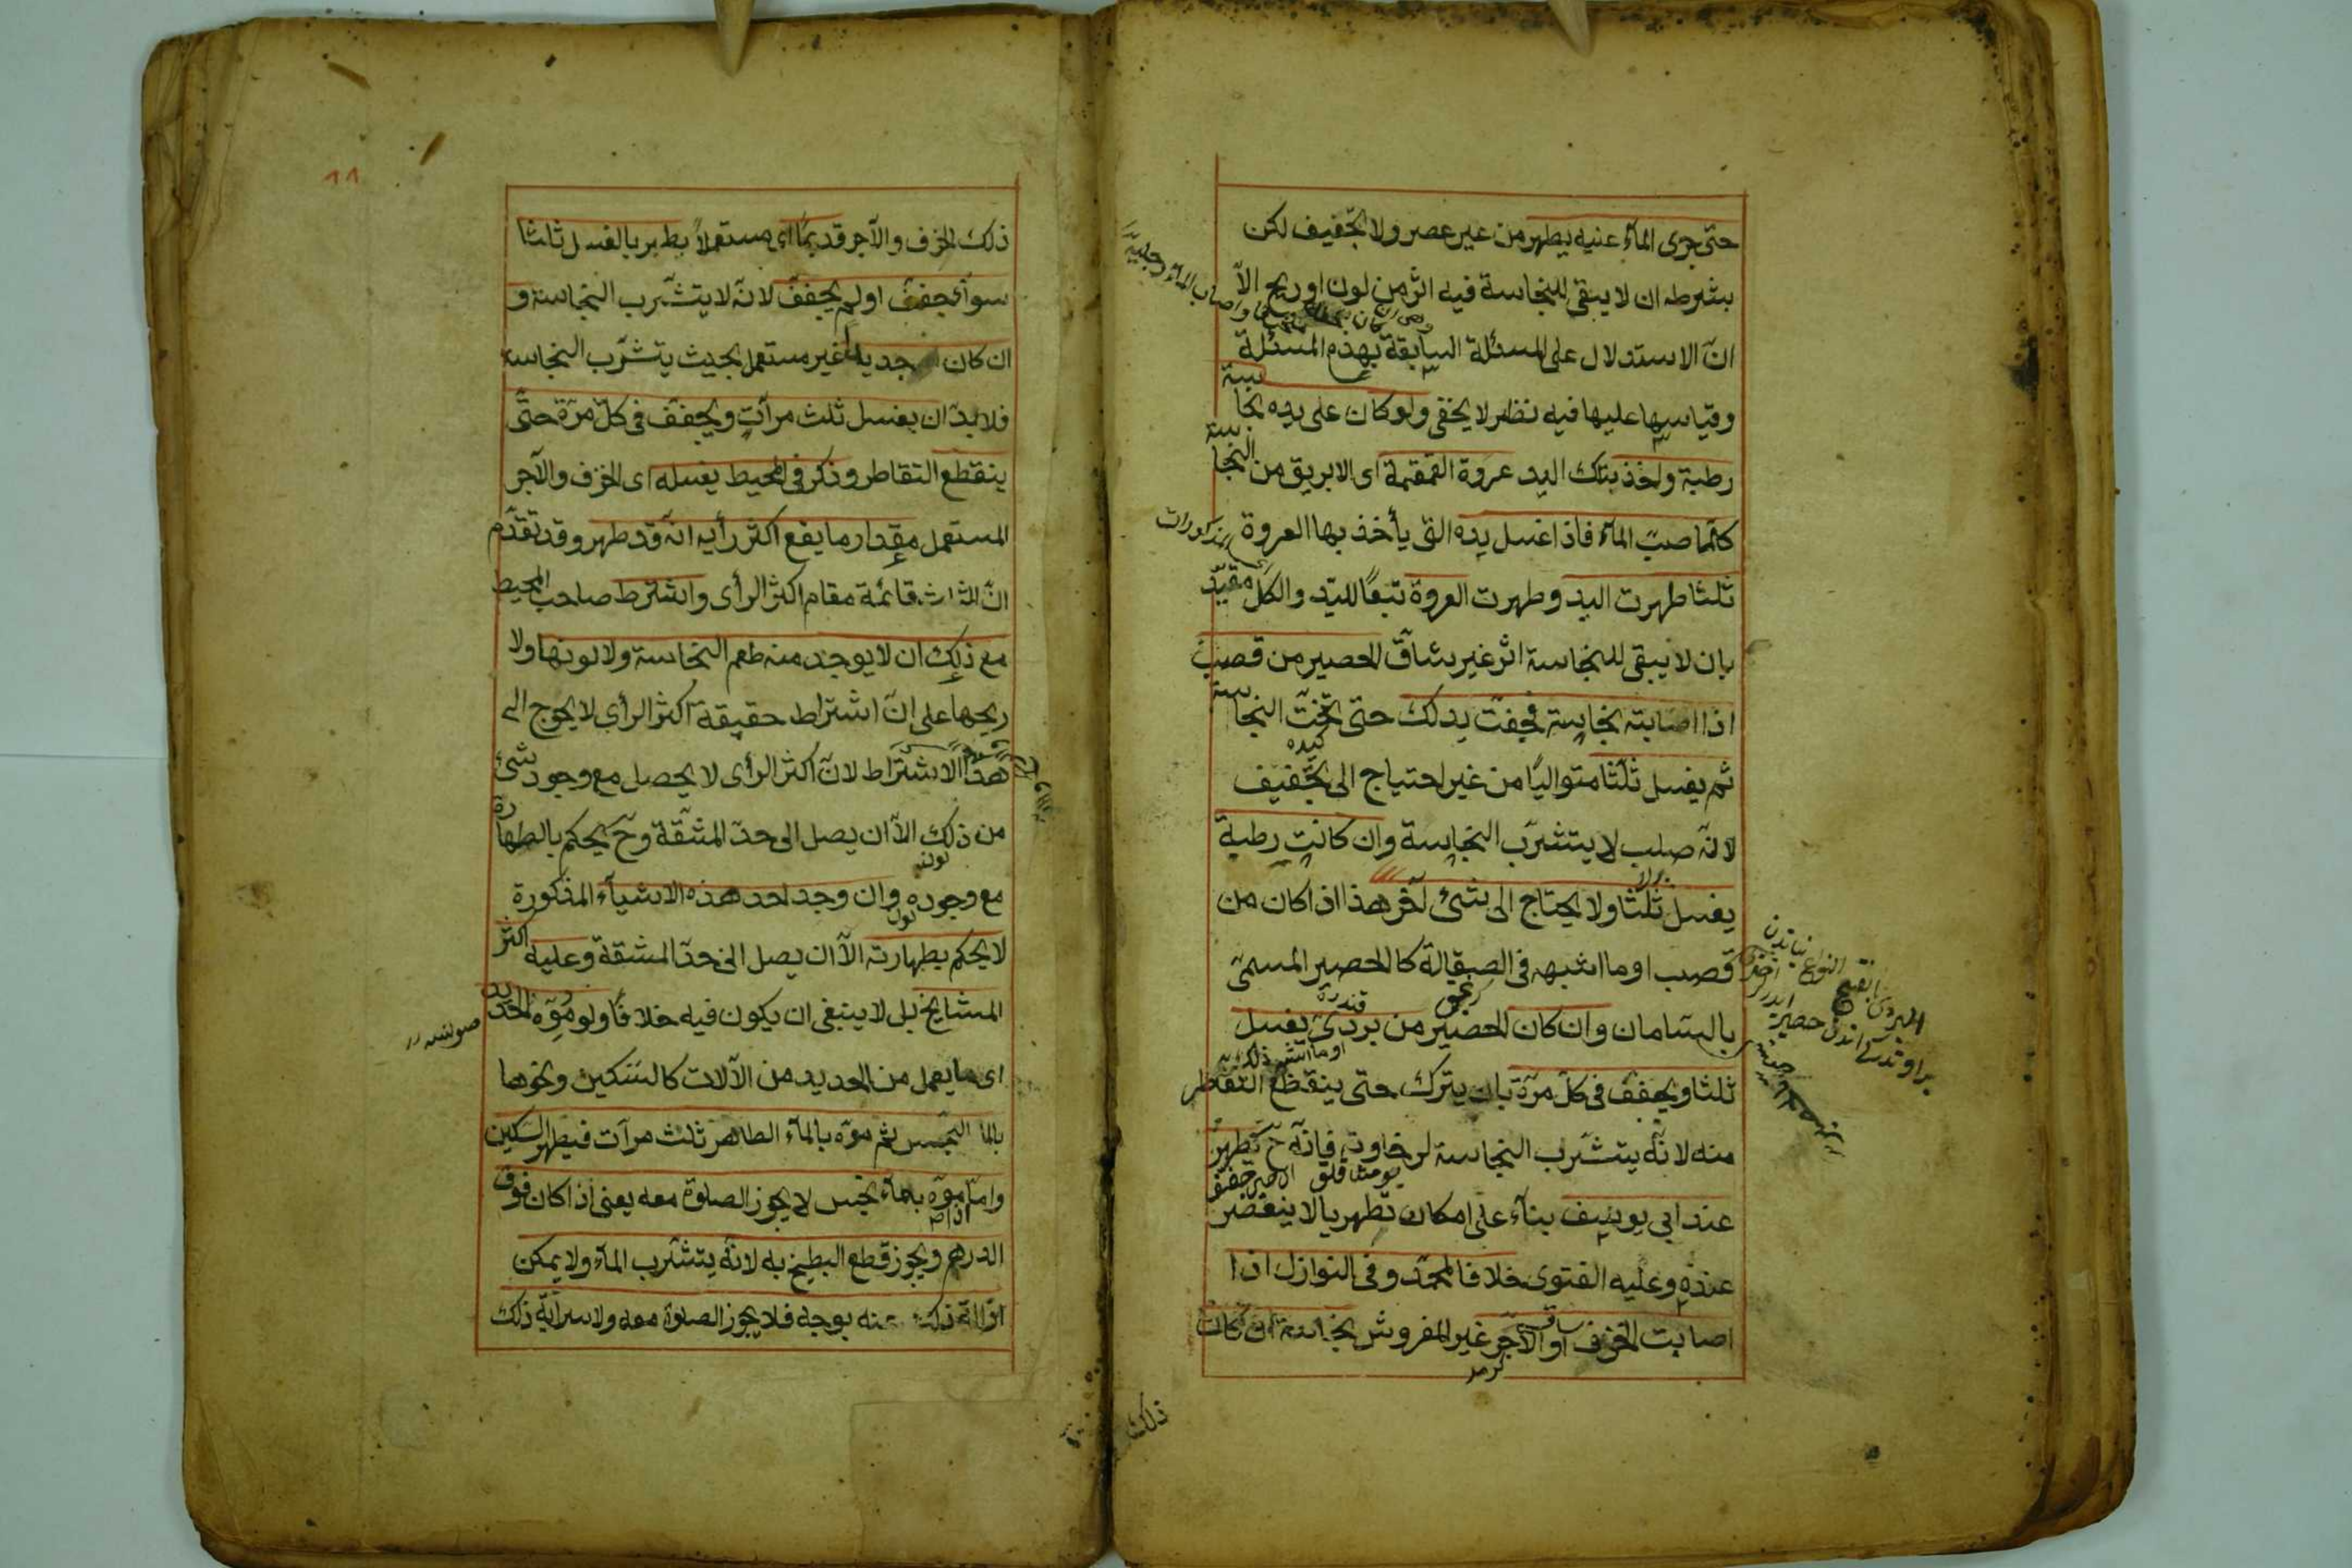 حتى جرى الماء عنيه يطهر من غير عصر ولا تجفيف لكن
بشرطه ان لا يبقى للنجاسة فيه اثر من لون او ريح الّا
انّ الاستدلال على المسئلة السابقة بهذه المسئلة
وقياسها عليها فيه نظر لا يخفى ولو كان على يده نجاسة
رطبة واخذ بتلك اليد عروة القمقمة اى الابريق من النجاسة
كلّما صبّ الماء فاذا غسل يده التى يأخذ بها العروة
المذكورات
ثلثا طهرت اليد وطهرت العروة تبعًا لليد والكل مقيّد
بان لا يبقى للنجاسة اثر غير شاقّ الحصير من قصب
اذا اصابته نجاسة فجفت يدلك حتى تحتّ النجاسة
ثم يغسل ثلثا متواليًا من غير احتياج الى تجفيف
لانّه صلب لا يتشرّب النجاسة وان كانت رطبة
يغسل ثلثا ولا يحتاج الى شئ آخر هذا اذا كان من
قصب او ما اشبهه فى الصقالة كالحصير المسمى
بالسامان وان كان الحصير من بردىّ يغسل
او ما اشبه ذلك
ثلثا ويجفف فى كل مرّة بان يترك حتى ينقطع التقاطر
منه لانّه يتشرّب النجاسة لرخاوته فانّه ح تطهر
عند ابى يوسف بناء على امكان تطهر ما لا ينعصر
عنده وعليه الفتوى خلافا لمحمّد وفى النوازل اذا
اصابت الخزف او الآجر غير المفروش نجاسة ان كان
كرمد
ذلك
١١
ذلك الخزف والآجر قديمًا اى مستعملًا يطهر بالغسل ثلثا
سوآء جفف او لم يجفف لانّه لا يتشرب النجاسة و
ان كان جديدا غير مستعمل بحيث يتشرّب النجاسة
فلا بدّ ان يغسل ثلث مرآتٍ ويجفف فى كلّ مرّة حتّى
ينقطع التقاطر وذكر فى المحيط يغسله اى الخزف والآجر
المستعمل مقدار ما يقع اكثر رأيه انّه قد طهر وقد تقدّم
انّ الثلث قائمة مقام اكثر الرأى واشترط صاحب المحيط
مع ذلك ان لا يوجد منه طعم النجاسة ولا لونها ولا
ريحها على انّ اشتراط حقيقة اكثر الرأى لا يحوج الى
هذا الاشتراط لانّ اكثر الرأى لا يحصل مع وجود شئ
من ذلك الّا ان يصل الى حدّ المشقّة وح يحكم بالطهارة
مع وجوده وان وجد احد هذه الاشيآء المذكورة
لا يحكم بطهارته الّا ان يصل الى حدّ المشقة وعليه اكثر
المشايخ بل لا ينبغى ان يكون فيه خلافًا ولو موّه الحديد
اى ما يعمل من الحديد من الآلات كالسكين ونحوها
بالما النجس ثم موّه بالمآء الطاهر ثلث مرآت فيطهر السكين
وامّا موّه بمآء نجس لا يجوز الصلوة معه يعنى اذا كان فوق
الدرهم ويجوز قطع البطيخ به لانّه يتشرب المآء ولا يمكن
ازالة ذلك عنه بوجه فلا يجوز الصلوة معه ولا سراية ذلك